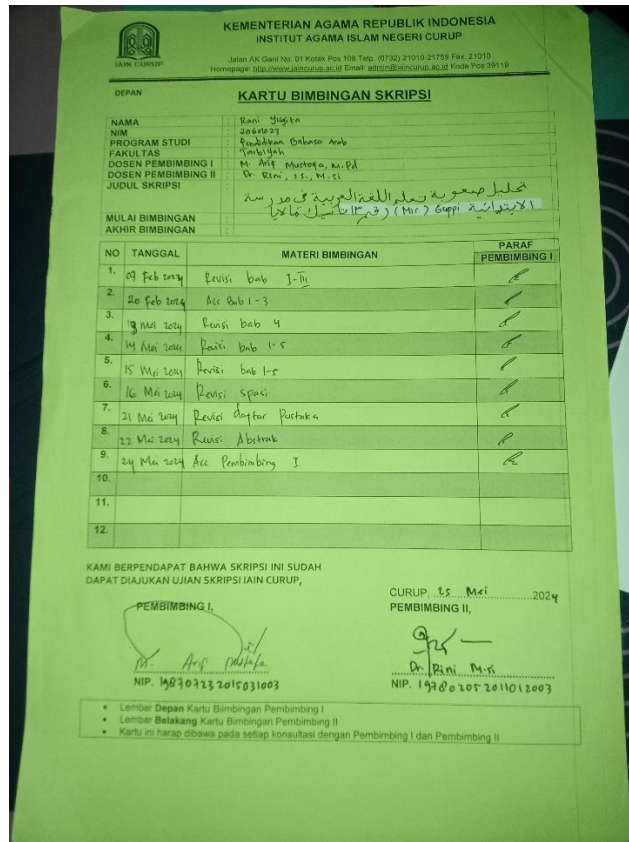 KEMENTERIAN AGAMA REPUBLIK INDONESIA
INSTITUT AGAMA ISLAM NEGERI CURUP
Jalan AK Gani No. 01 Kotak Pos 108 Telp. (0732) 21010-21759 Fax. 21010
Homepage: http://www.iaincurup.ac.id Email: admin@iaincurup.ac.id Kode Pos 39119
IAIN CURUP
DEPAN
KARTU BIMBINGAN SKRIPSI
NAMA : Rani Yugita
NIM : 20601023
PROGRAM STUDI : Pendidikan Bahasa Arab
FAKULTAS : Tarbiyah
DOSEN PEMBIMBING I : M. Arif Mustofa, M.Pd
DOSEN PEMBIMBING II : Dr. Rini, SS., M.Si
JUDUL SKRIPSI : تحليل صعوبة تعلم اللغة العربية في مدرسة
الابتدائية Guppi (Mis) رقم ١٣ تاسيك مالايا
MULAI BIMBINGAN :
AKHIR BIMBINGAN :
NO TANGGAL MATERI BIMBINGAN PARAF PEMBIMBING I
1. 07 Feb 2024 Revisi bab I-III
2. 20 Feb 2024 Acc Bab 1-3
3. 13 Mei 2024 Revisi bab 4
4. 14 Mei 2024 Revisi bab 1-5
5. 15 Mei 2024 Revisi bab 1-5
6. 16 Mei 2024 Revisi Spasi
7. 21 Mei 2024 Revisi daftar Pustaka
8. 22 Mei 2024 Revisi Abstrak
9. 24 Mei 2024 Acc Pembimbing I
10.
11.
12.
KAMI BERPENDAPAT BAHWA SKRIPSI INI SUDAH
DAPAT DIAJUKAN UJIAN SKRIPSI IAIN CURUP,
CURUP, 25 Mei 2024
PEMBIMBING I,
PEMBIMBING II,
M. Arif Mustofa
Dr. Rini M.Si
NIP. 198707232015031003
NIP. 197802052011012003
• Lembar Depan Kartu Biimbingan Pembimbing I
• Lembar Belakang Kartu Bimbingan Pembimbing II
• Kartu ini harap dibawa pada setiap konsultasi dengan Pembimbing I dan Pembimbing II